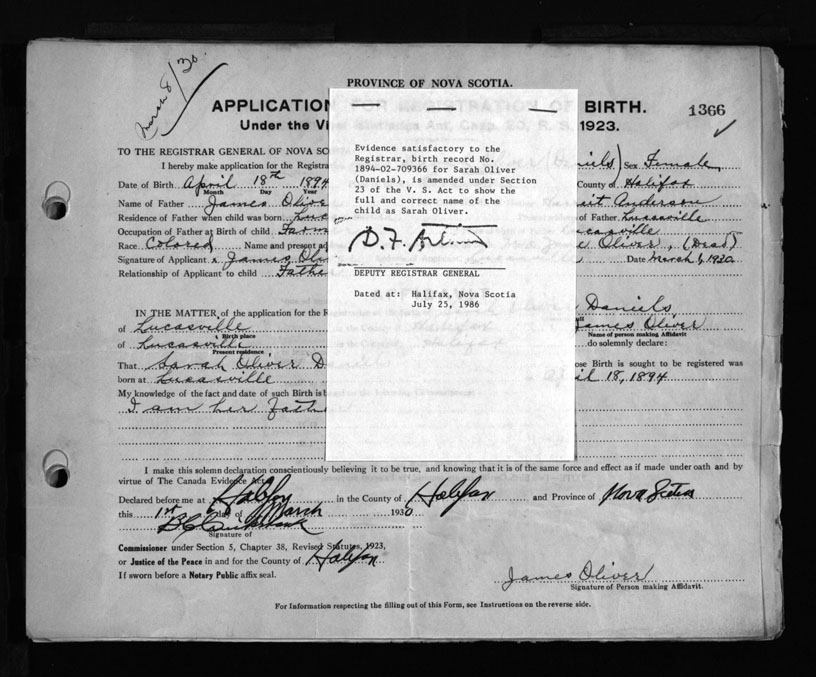 March 8/30.
PROVINCE OF NOVA SCOTIA.
APPLICATION FOR REGISTRATION OF BIRTH.
1366
Under the Vi 1923.
TO THE REGISTRAR GENERAL OF NOVA SCO
I hereby make application for the Registra (Daniels) Sex Female
Date of Birth April 18th 1894 County of Halifax
Month Day Year
Name of Father James Olive Anderson
Residence of Father when child was born Luc of Father Lucasville
Occupation of Father at Birth of child Farm Lucasville
Race Colored Name and present ad Oliver, (Dead)
Signature of Applicant x James Oliv Date March 1, 1930
Relationship of Applicant to child Fathe
Evidence satisfactory to the
Registrar, birth record No.
1894-02-709366 for Sarah Oliver
(Daniels), is amended under Section
23 of the V. S. Act to show the
full and correct name of the
child as Sarah Oliver.
DEPUTY REGISTRAR GENERAL
Dated at: Halifax, Nova Scotia
July 25, 1986
IN THE MATTER of the application for the R Daniels
of Lucasville James Oliver
Birth place Name of person making Affidavit
of Lucasville do solemnly declare:
Present residence
That Sarah Oliver D ose Birth is sought to be registered was
born at Lucasville il 18, 1894
My knowledge of the fact and date of such Birth is b
I am her Fath
I make this solemn declaration conscientiously believing it to be true, and knowing that it is of the same force and effect as if made under oath and by
virtue of The Canada Evidence Act.
Declared before me at Halifax in the County of Halifax and Province of Nova Scotia
this 1st day of March 1930
Signature of
Commissioner under Section 5, Chapter 38, Revised Statutes, 1923,
or Justice of the Peace in and for the County of Halifax
If sworn before a Notary Public affix seal.
James Oliver
Signature of Person making Affidavit.
For Information respecting the filling out of this Form, see Instructions on the reverse side.